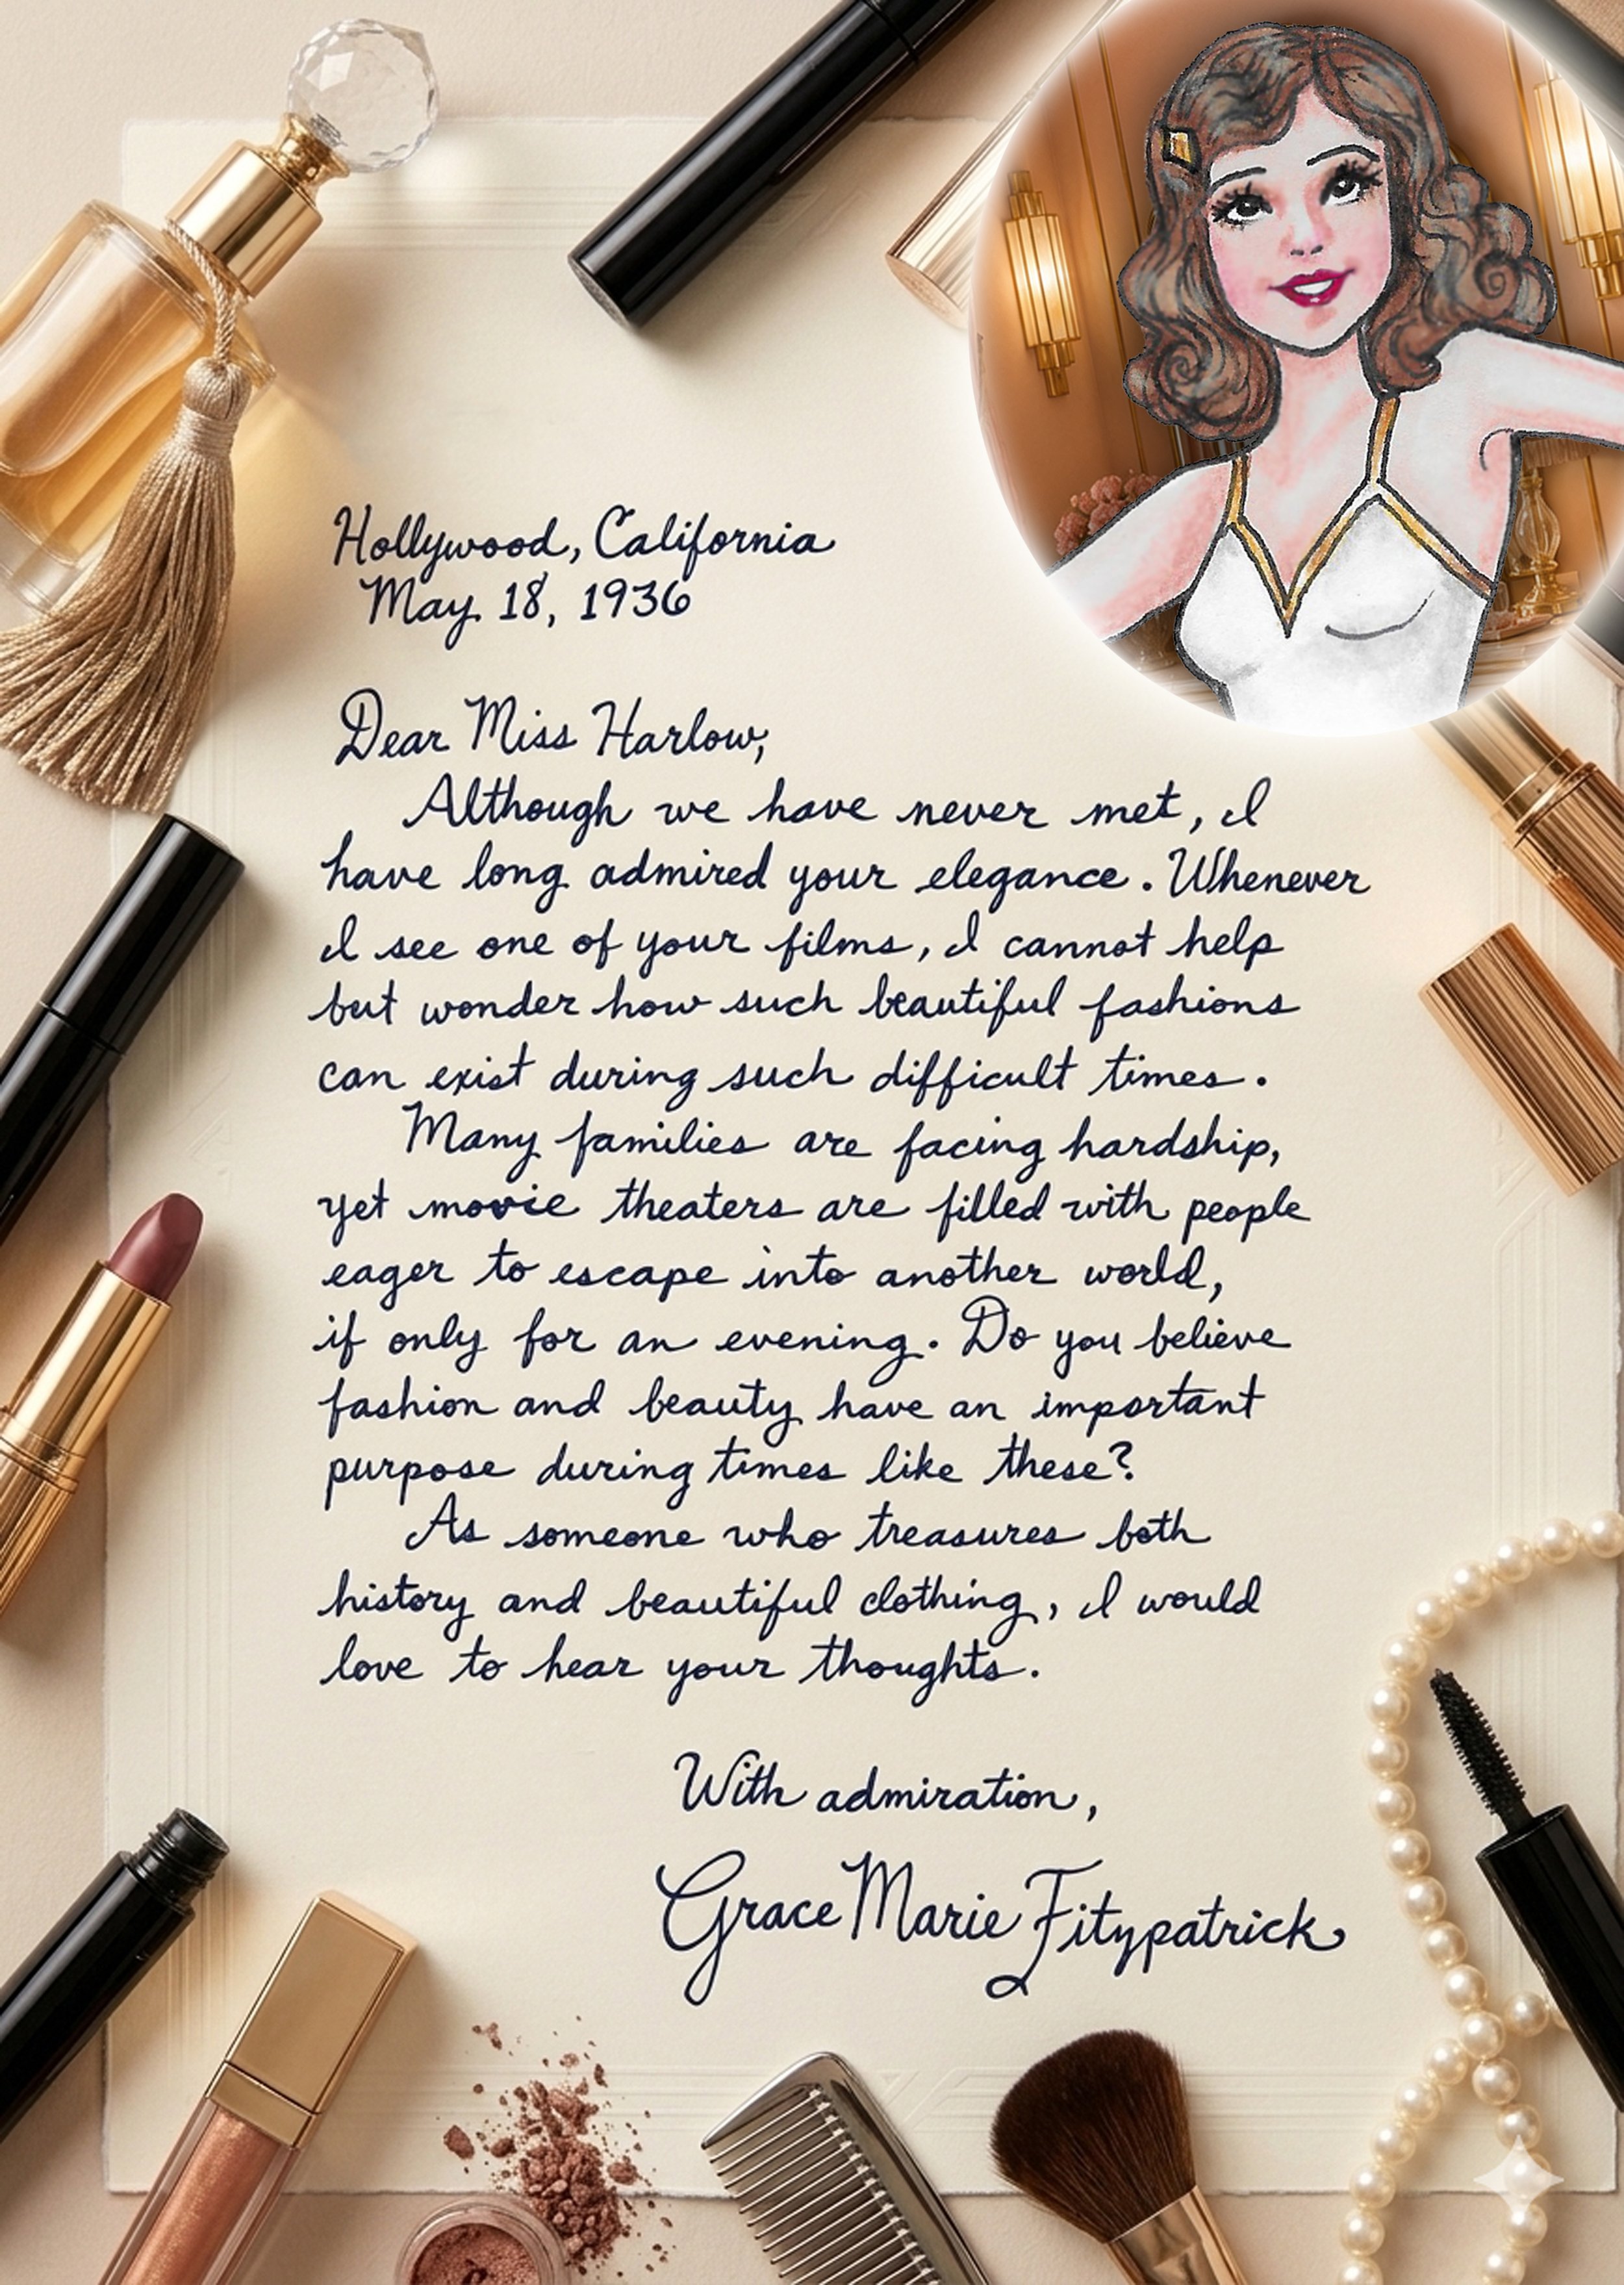 Hollywood, California
May 18, 1936
Dear Miss Harlow,
Although we have never met, I
have long admired your elegance. Whenever
I see one of your films, I cannot help
but wonder how such beautiful fashions
can exist during such difficult times.
Many families are facing hardship,
yet movie theaters are filled with people
eager to escape into another world,
if only for an evening. Do you believe
fashion and beauty have an important
purpose during times like these?
As someone who treasures both
history and beautiful clothing, I would
love to hear your thoughts.
With admiration,
Grace Marie Fitzpatrick